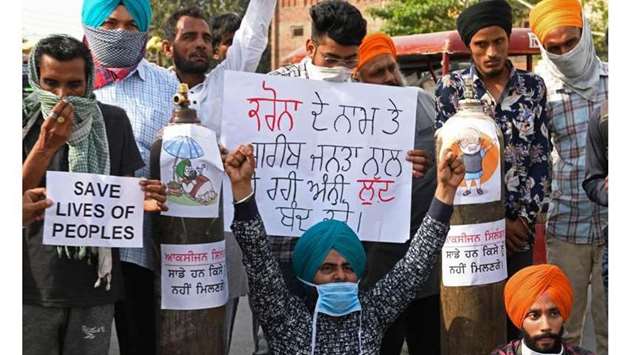 SAVE
LIVES OF
PEOPLES
ਕਰੋਨਾ ਦੇ ਨਾਮ ਤੇ
ਗਰੀਬ ਜਨਤਾ ਨਾਲ
ਰਹੀ ਅੰਨੀ ਲੁੱਟ
ਬੰਦ
ਆਕਸੀਜਨ
ਸਾਡੇ ਹਨ ਕਿਸੇ ਨੂੰ
ਨਹੀਂ ਮਿਲਣਗੇ
ਆਕਸੀਜਨ
ਸਾਡੇ ਹਨ ਕਿਸੇ ਨੂੰ
ਨਹੀਂ ਮਿਲਣਗੇ